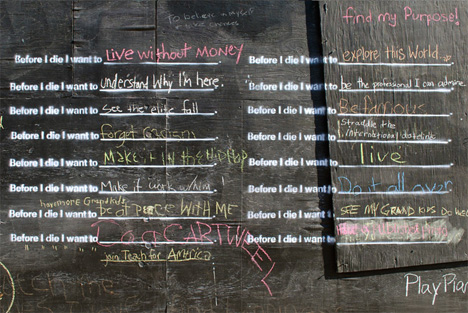 find my Purpose!
To be
Before I die I want to LIVE WITHOUT MONEY.
Before I die I want to understand Why I'm here.
Before I die I want to see the elite fall.
Before I die I want to forget
Before I die I want to MAKE IT IN THE HIPHOP
Before I die I want to Make it work w/him!
have more Grand kids
Before I die I want to be at peace WITH ME
Before I die I want to Do a CARTWHEEL
" " " " " join Teach for AMERICA
Before I die I want to explore this World.
Before I die I want to be the professional I can
Before I die I want to Be Famous.
Before I die I want to Straddle the International dateline.
Before I die I want to live.
Before I die I want to Do it all over.
Before I die I want to SEE MY GRAND KIDS Do
Before I die I want to
PlayPia